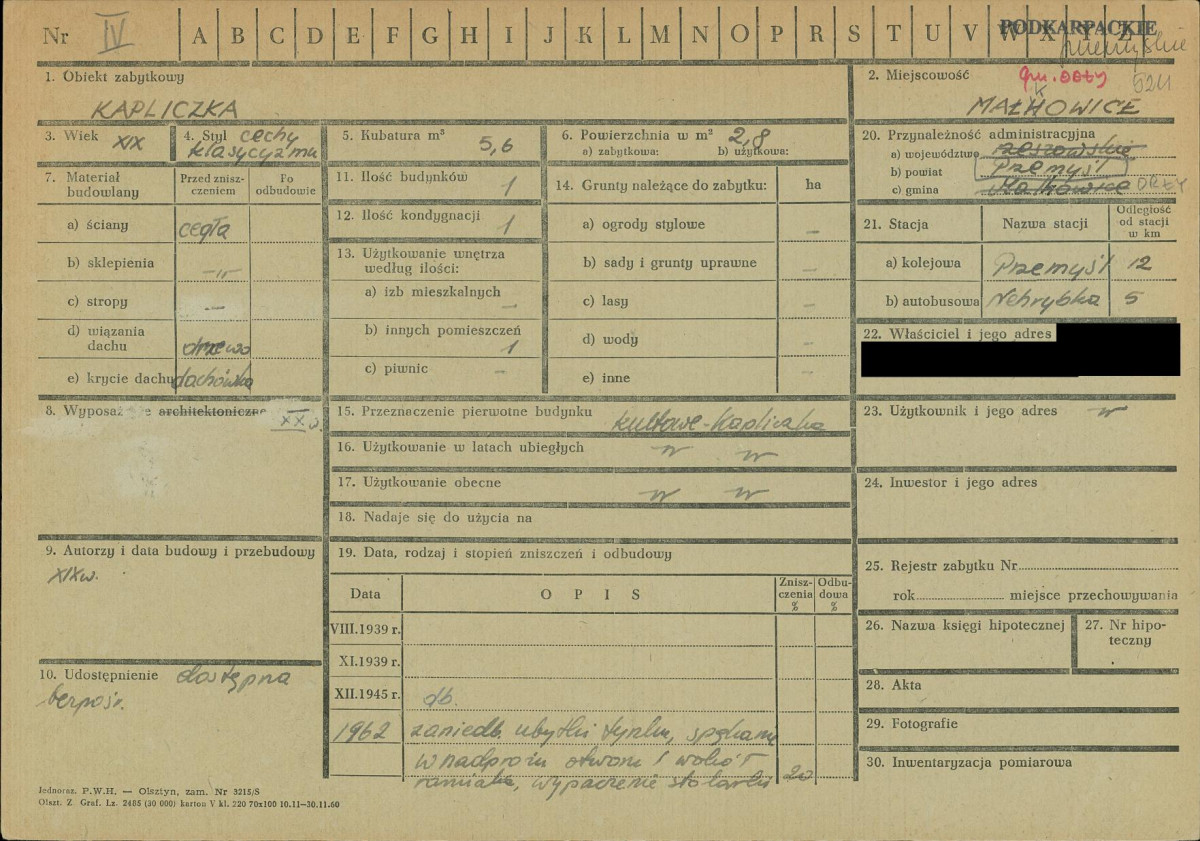 Nr IV A B C D E F G H I J K L M N O P R S T U V W X Y Z
PODKARPACKIE
przemyskie
1. Obiekt zabytkowy
KAPLICZKA
2. Miejscowość gm. Orły 5211
MAŁKOWICE
3. Wiek XIX
4. Styl cechy
klasycyzmu
5. Kubatura m³
5,6
6. Powierzchnia w m² 2,8
a) zabytkowa: b) użytkowa:
20. Przynależność administracyjna
a) województwo rzeszowskie
b) powiat Przemyśl
c) gmina Małkowice ORŁY
7. Materiał budowlany
Przed znisz-
czeniem
Po
odbudowie
a) ściany cegła
b) sklepienia -"-
c) stropy -
d) wiązania
dachu drzewo
e) krycie dachu dachówka
11. Ilość budynków 1
12. Ilość kondygnacji 1
13. Użytkowanie wnętrza
według ilości:
a) izb mieszkalnych -
b) innych pomieszczeń
1
c) piwnic -
14. Grunty należące do zabytku: ha
a) ogrody stylowe -
b) sady i grunty uprawne -
c) lasy -
d) wody -
e) inne -
21. Stacja Nazwa stacji
Odległość
od stacji
w km
a) kolejowa Przemyśl 12
b) autobusowa Nehrybka 5
22. Właściciel i jego adres
8. Wyposaż e architektoniczne
XX w.
15. Przeznaczenie pierwotne budynku
kultowe - kapliczka
16. Użytkowanie w latach ubiegłych -"- -"-
17. Użytkowanie obecne -"- -"-
18. Nadaje się do użycia na
23. Użytkownik i jego adres -"-
24. Inwestor i jego adres
9. Autorzy i data budowy i przebudowy
XIX w.
19. Data, rodzaj i stopień zniszczeń i odbudowy
Data O P I S
Znisz-
czenia
%
Odbu-
dowa
%
VIII.1939 r.
XI.1939 r.
XII.1945 r. db.
1962 zaniedb. ubytki tynku, spękania
w nadprożu otworu i wokół
ramiaka, wypaczenie stolarki 20
10. Udostępnienie dostępna
bezpośr.
25. Rejestr zabytku Nr
rok miejsce przechowywania
26. Nazwa księgi hipotecznej
27. Nr hipo-
teczny
28. Akta
29. Fotografie
30. Inwentaryzacja pomiarowa
Jednoraz. P.W.H. — Olsztyn, zam. Nr 3215/S
Olszt. Z Graf. Lz. 2485 (30 000) karton V kl. 220 70x100 10.11—30.11.60